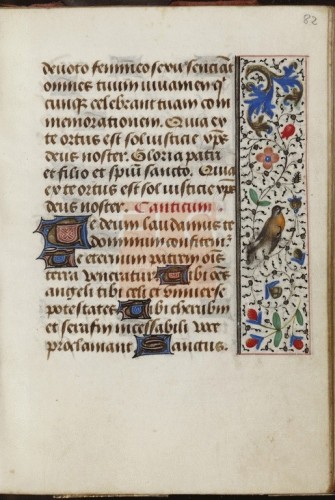 82
deuoto femineo sexu senciant
omnes tuum iuuamen q̇
cunq̇ celebrant tuam com
memorationem. Quia ex
te ortus est sol iusticie xp̄c
deus noster. Gloria patri
et filio et spiū sancto. Quia
ex te ortus est sol iusticie xp̄c
deus noster. Canticum.
Te deum laudamus te
dominum confitemꝛ
Te eternum patrem oīs
terra veneratur Tibi oēs
angeli tibi celi et vniuerse
potestates Tibi cherubin
et serafin incessabili voce
proclamant Sanctus.